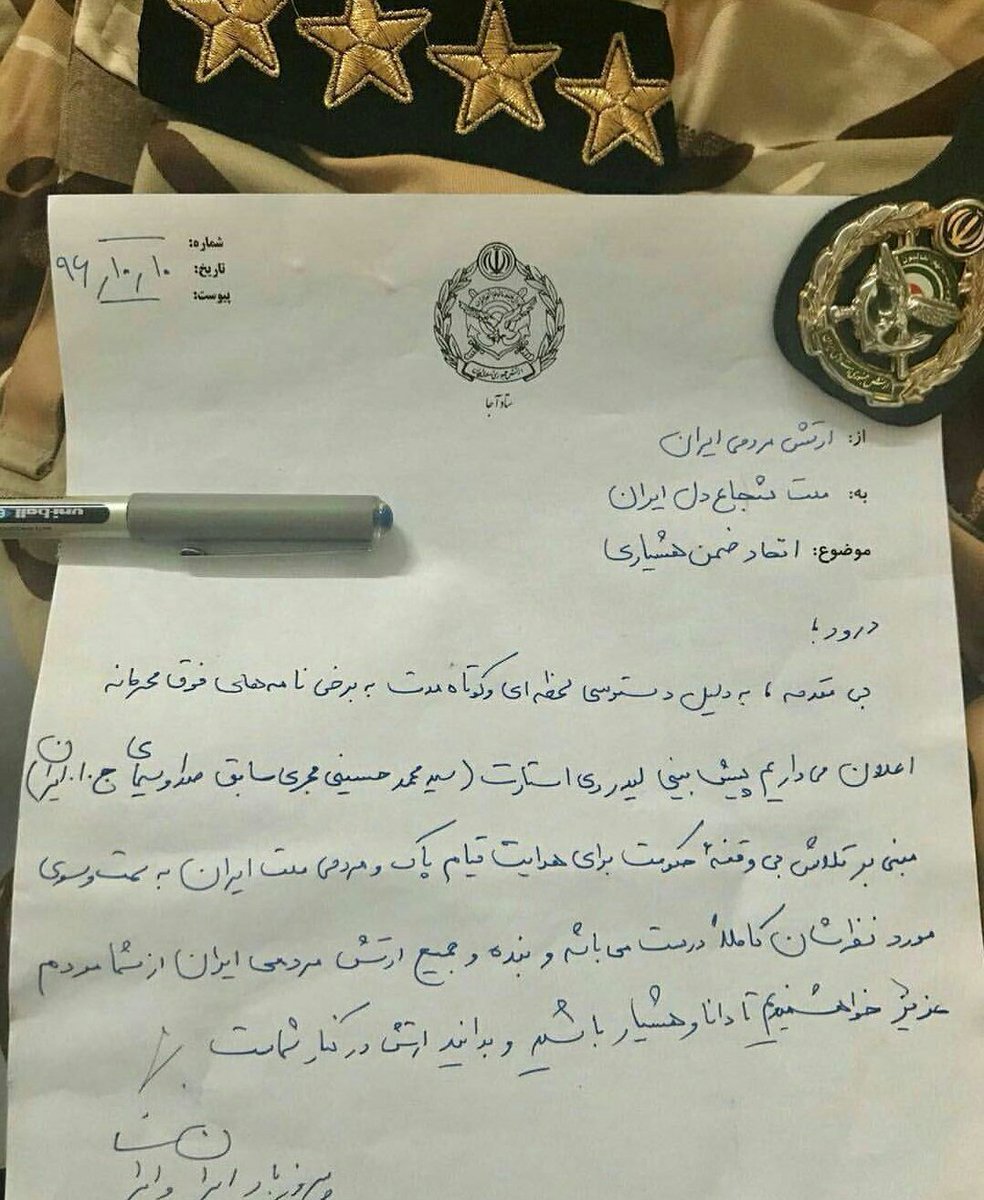 شماره:
تاریخ: ۹۶/۱۰/۱۰
پیوست:
ستاد آجا
از: ارتش مردمی ایران
به: ملت شجاع دل ایران
موضوع: اتحاد ضمن هشیاری
درود؛
بی مقدمه، به دلیل دسترسی لحظه‌ای و کوتاه مدت به برخی نامه‌های فوق محرمانه
اعلان می‌داریم پیش بینی لیدر ری استارت (سید محمد حسینی مجری سابق صدا و سیمای ج.ا. ایران)
مبنی بر تلاش بی وقفهٔ حکومت برای هدایت قیام پاک و مردمی ملت ایران به سمت و سوی
مورد نظرشان کاملاً درست می باشد و بنده و جمیع ارتش مردمی ایران از شما مردم
عزیز خواهشمندیم تا دانا و هشیار باشید و بدانید ارتش در کنار شماست
uni-ball